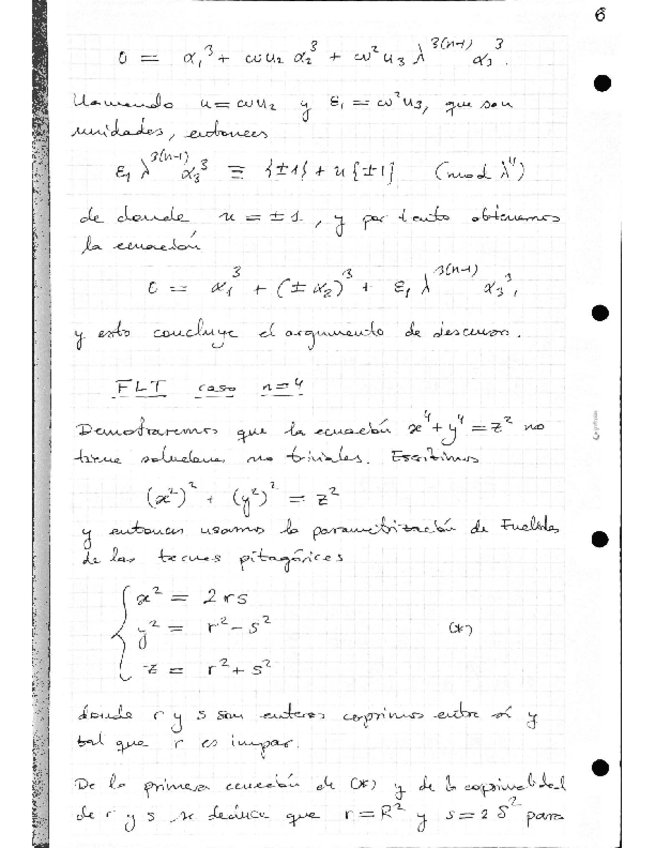 6
0 = α₁³ + ωu₂ α₂³ + ω²u₃ λ³⁽ⁿ⁻¹⁾ α₃³.
Llamando u = ωu₂ y ε₁ = ω²u₃, que son
unidades, entonces
ε₁ λ³⁽ⁿ⁻¹⁾ α₃³ ≡ {±1} + u{±1} (mod λ⁴)
de donde u = ±1, y por tanto obtenemos
la ecuación
0 = α₁³ + (±α₂)³ + ε₁ λ³⁽ⁿ⁻¹⁾ α₃³,
y esto concluye el argumento de descenso.
FLT caso n=4
Demostraremos que la ecuación x⁴+y⁴=z² no
tiene soluciones no triviales. Escribimos
(x²)² + (y²)² = z²
y entonces usamos la parametrización de Euclides
de las ternas pitagóricas
x² = 2rs
y² = r²-s² (*)
z = r²+s²
donde r y s son enteros coprimos entre sí y
tal que r es impar.
De la primera ecuación de (*) y de la coprimalidad
de r y s se deduce que r=R² y s=2S² para